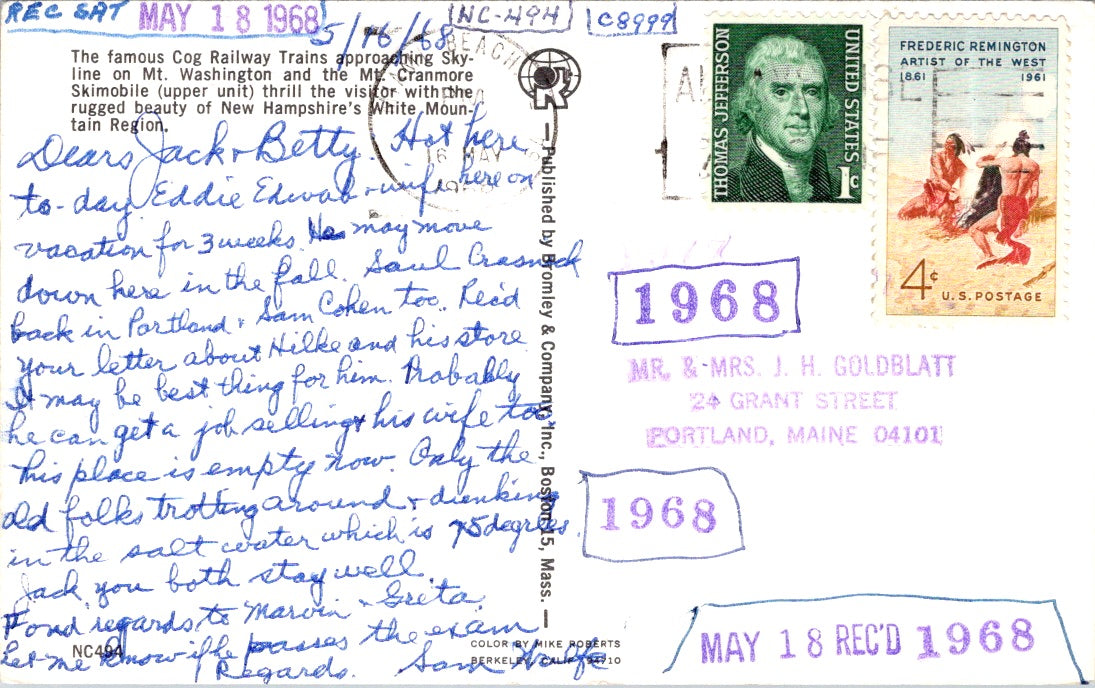 REC SAT MAY 18 1968
5/16/68
NC-494
C8999
The famous Cog Railway Trains approaching Sky-
line on Mt. Washington and the Mt. Cranmore
Skimobile (upper unit) thrill the visitor with the
rugged beauty of New Hampshire's White Moun-
tain Region.
Dears Jack & Betty. Hot here
to-day. Eddie & wife here on
vacation for 3 weeks. He may move
down here in the fall. Saul
back in Portland & Sam Cohen too. Rec'd
your letter about Hilke and his store
It may be best thing for him. Probably
he can get a job selling & his wife too.
his place is empty now. Only the
old folks trotting around & dunking
in the salt water which is 75 degrees.
Jack you both stay well.
Fond regards to Marvin & Greta.
Let me know if he passes the exam
Regards. Sam
NC494
COLOR BY MIKE ROBERTS
BERKELEY, CALIF. 94710
— Published by Bromley & Company, Inc., Boston 15, Mass. —
BEACH
16 MAY
THOMAS JEFFERSON
UNITED STATES
1c
FREDERIC REMINGTON
ARTIST OF THE WEST
1861 1961
4c U.S. POSTAGE
1968
MR. & MRS. J. H. GOLDBLATT
24 GRANT STREET
PORTLAND, MAINE 04101
1968
MAY 18 REC'D 1968